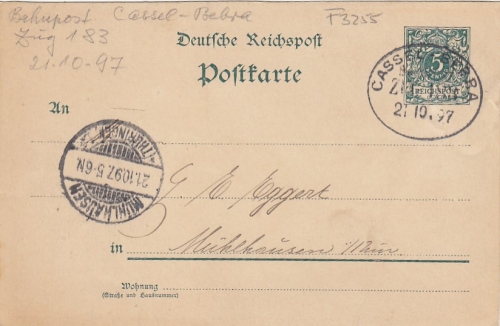 Bahnpost Cassel-Bebra
Zug 183
21.10-97
F3255
Deutsche Reichspost
Postkarte
5
REICHSPOST
CASSEL BEBRA
21 10. 97
An
MÜHLHAUSEN
21.10.97.5-6N.
(THÜRINGEN)
G E Eggert
in Mühlhausen
Wohnung
(Straße und Hausnummer)